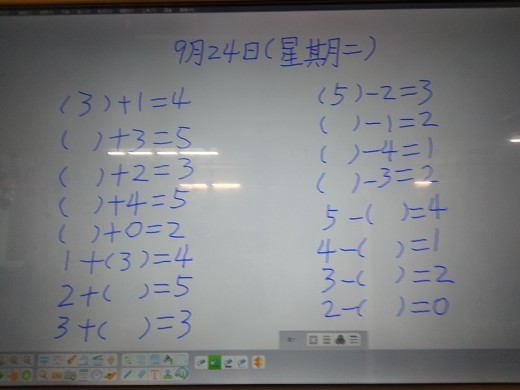 9月24日(星期二)
(3)+1=4
( )+3=5
( )+2=3
( )+4=5
( )+0=2
1+(3)=4
2+( )=5
3+( )=3
(5)-2=3
( )-1=2
( )-4=1
( )-3=2
5-( )=4
4-( )=1
3-( )=2
2-( )=0